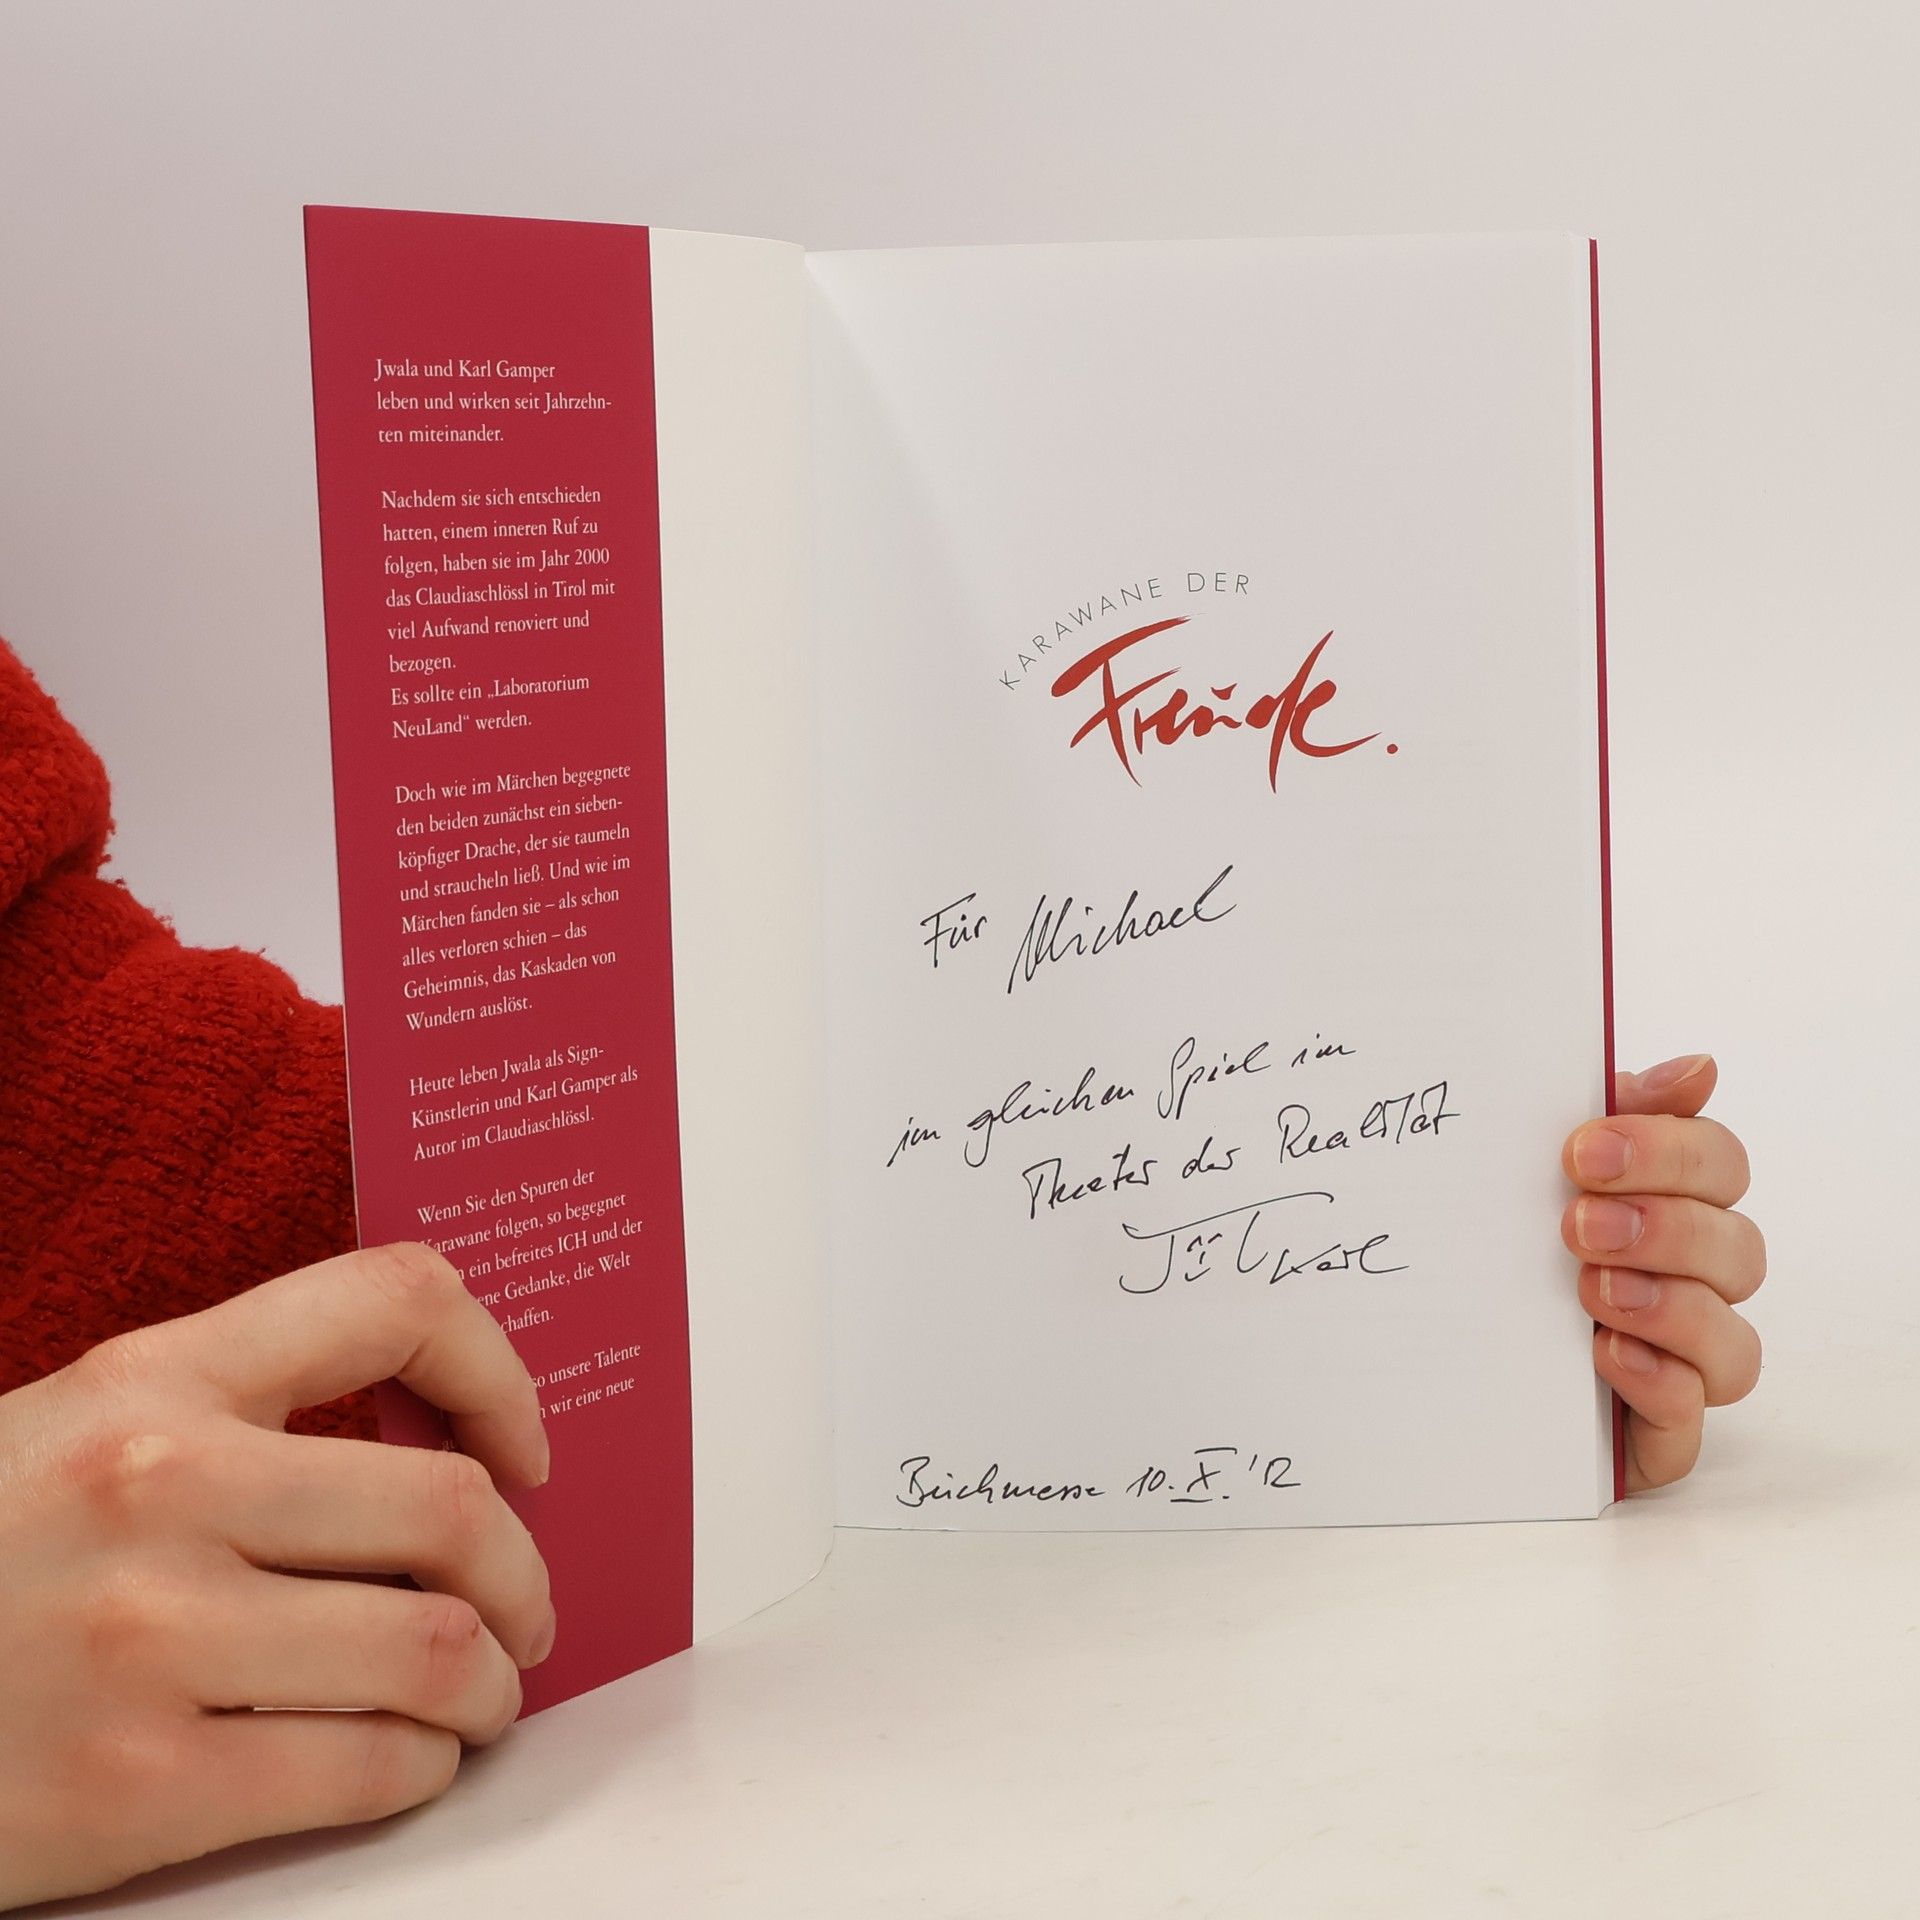 Jwala und Karl Gamper
leben und wirken seit Jahrzehn-
ten miteinander.
Nachdem sie sich entschieden
hatten, einem inneren Ruf zu
folgen, haben sie im Jahr 2000
das Claudiaschlössl in Tirol mit
viel Aufwand renoviert und
bezogen.
Es sollte ein „Laboratorium
NeuLand“ werden.
Doch wie im Märchen begegnete
den beiden zunächst ein sieben-
köpfiger Drache, der sie taumeln
und straucheln ließ. Und wie im
Märchen fanden sie – als schon
alles verloren schien – das
Geheimnis, das Kaskaden von
Wundern auslöst.
Heute leben Jwala als Sign-
Künstlerin und Karl Gamper als
Autor im Claudiaschlössl.
Wenn Sie den Spuren der
Karawane folgen, so begegnet
ein befreites ICH und der
Gedanke, die Welt
so unsere Talente
wir eine neue
KARAWANE DER
Freude.
Für Michael
im gleichen Spiel im
Theater der Realität
Karl
Buchmesse 10. X. '12